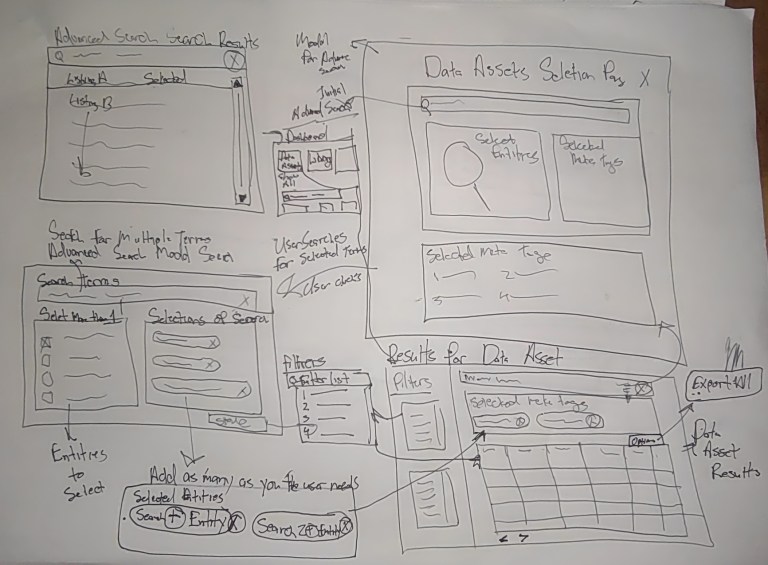 Advanced Search Search Results
Q
X
Listing A Selected
Listing B
Modal
for Advance
Search
Initial
Advanced Search
Dashboard
Data
Asset
Show
All
Data Assets Seletion Pag X
Select
Entities
Selected
Meta Tags
Selected Meta Tags
1 2
3 4
Search for Multiple Terms
Advanced Search Modal Search
Search Terms
X
Selections of Search
Save
User Searches
for Selected Terms
Filters
Filter list
1
2
3
4
Results for Data Asset
Filters
Selected meta tags
Options
Export All
Data
Asset
Results
< >
Entities
to
Select
Add as many as you the user needs
Selected Entities
Search + Entity X
Search 2 + Entity X